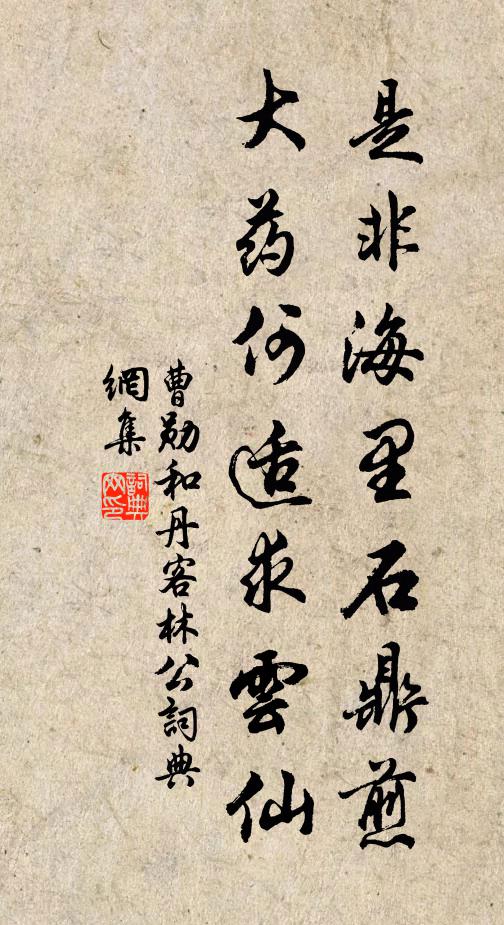 是非海里石鼎煎
大药何适求雲仙
曹勋和丹客林公詞典
網集
詞典
网印